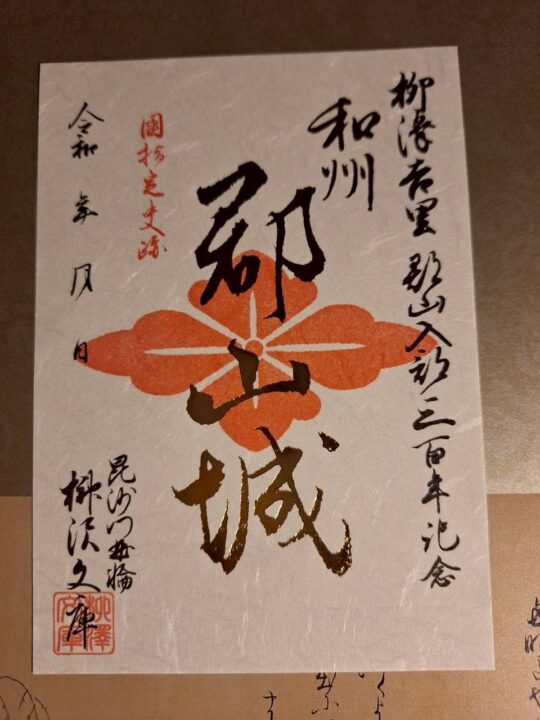 柳澤吉里郡山入部三百年記念
和州
郡山城
國指定史跡
令和 年 月 日
毘沙門曲輪
柳沢文庫
柳澤文庫